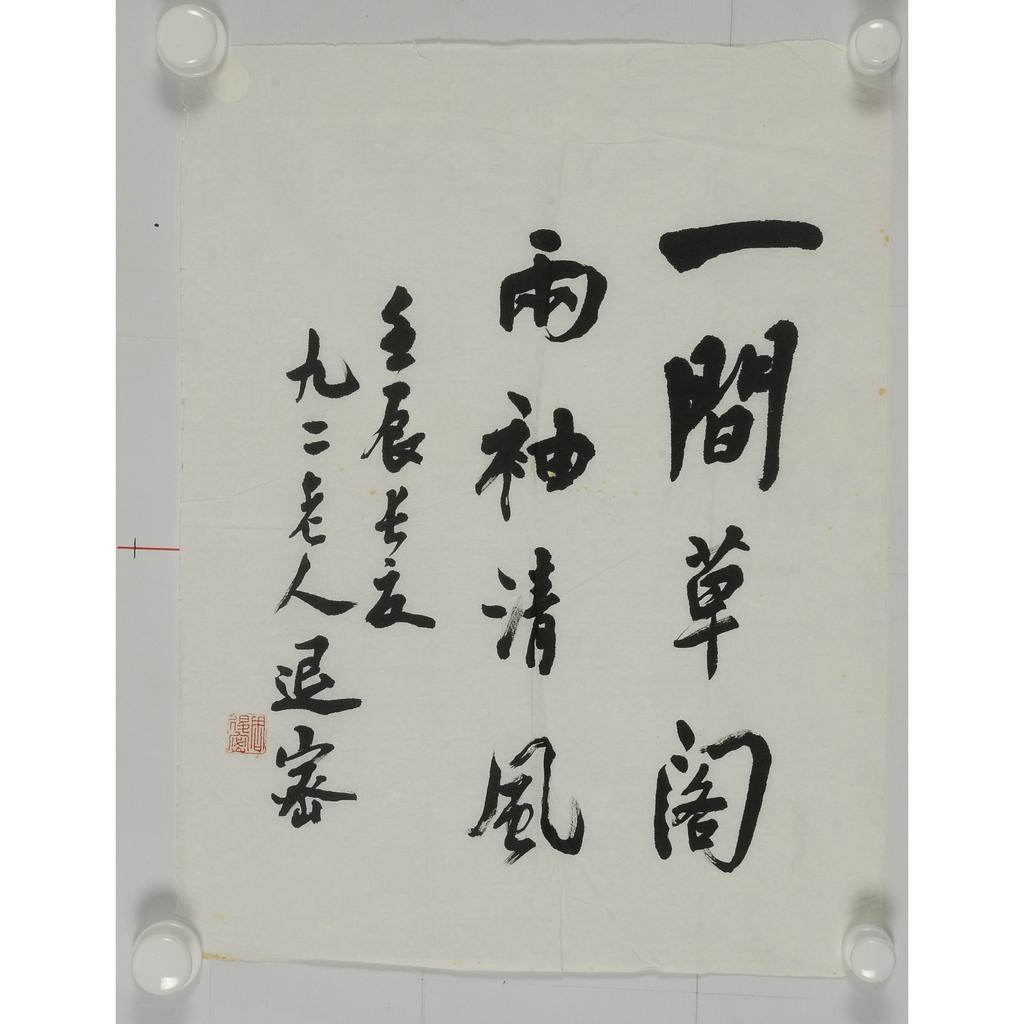 一間草阁
兩袖清風
壬辰长夏
九二老人退密
周退密